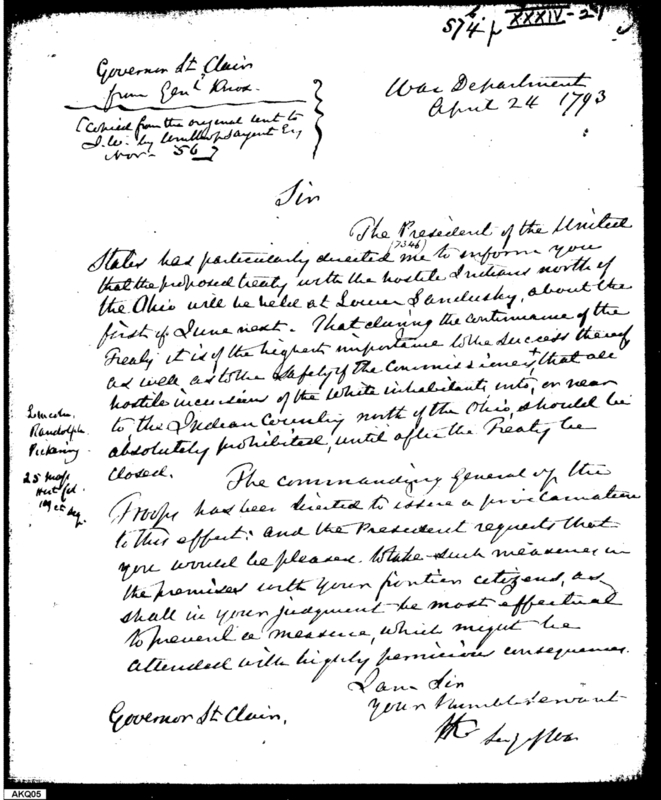 574. p XXXIV-29
Governor St. Clair
from Genl. Knox.
War Department
April 24 1793
(Copied from the original sent to
I.W. by Winthrop Sargent Esq
Nov. 56)
Sir
The President of the United
(7346)
States has particularly directed me to inform you
that the proposed treaty with the hostile Indians north of
the Ohio will be held at Lower Sandusky, about the
first of June next. That during the continuance of the
Treaty it is of the highest importance to the success thereof
as well as to the safety of the Commissioners+, that all
hostile incursions of the White inhabitants, into, or near
to the Indian Country north of the Ohio, should be
absolutely prohibited, until after the Treaty be
closed.
Lincoln.
Randolph
Pickering
25 Mass
Hist
The commanding General of the
Troops has been directed to issue a proclamation
to this effect: and the President requests that
you would be pleased to take such measures in
the premises with your frontier citizens, as
shall in your judgment be most effectual
to prevent a measure, which might be
attended with highly pernicious consequences.
I am Sir
your humble servant
HK
Secy of War
Governor St Clair.
AKQ05